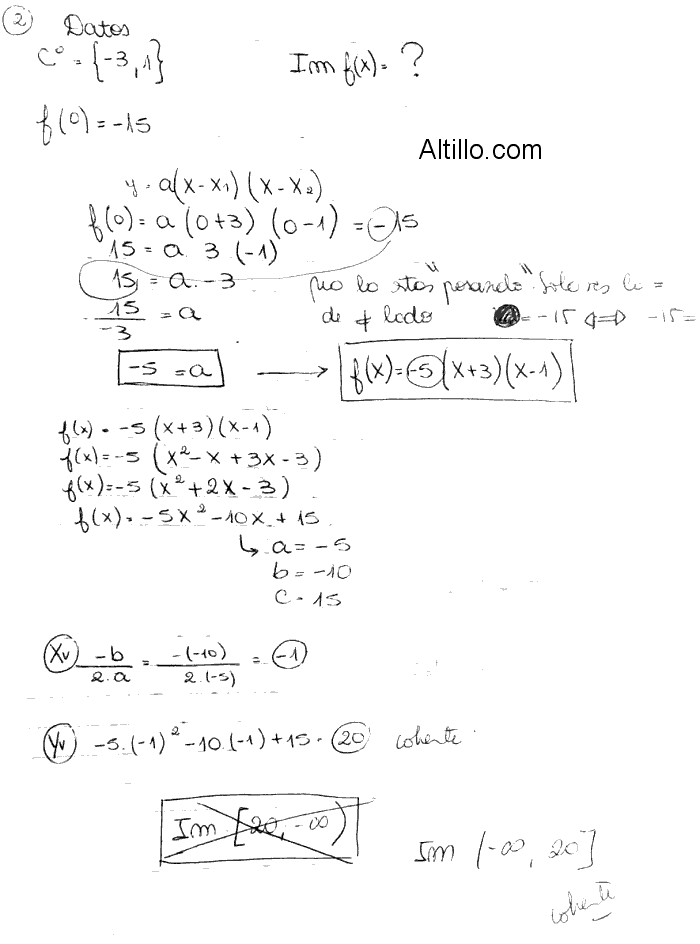 2 Datos
C° = {-3, 1} Im f(x) = ?
f(0) = -15
Altillo.com
y = a(x-x₁)(x-x₂)
f(0) = a (0+3) (0-1) = -15
15 = a 3 (-1)
15 = a . -3
no lo estas "pasando". Solo es la =
15/-3 = a
de lado = -15 ⇔ -15 =
-5 = a → f(x) = -5 (x+3) (x-1)
f(x) = -5 (x+3) (x-1)
f(x) = -5 (x² - x + 3x - 3)
f(x) = -5 (x² + 2x - 3)
f(x) = -5x² - 10x + 15
↳ a = -5
b = -10
c = 15
Xv -b/2.a = -(-10)/2.(-5) = -1
Yv -5.(-1)² - 10.(-1) + 15 = 20 coherente
Im [20, -∞)
Im (-∞, 20]
coherente